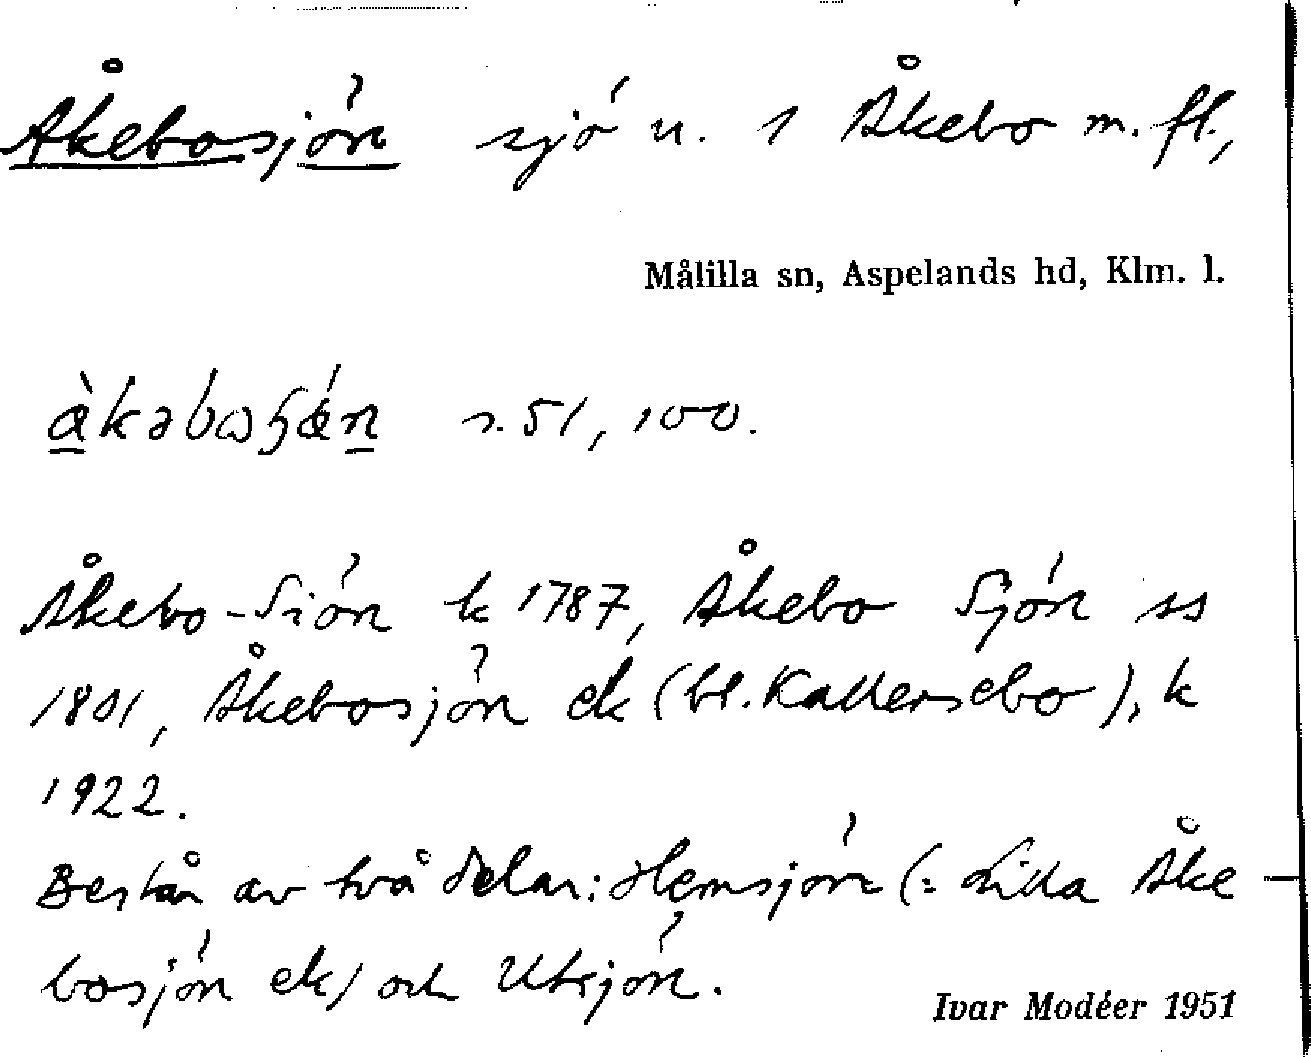 Åkebosjön sjö u. 1 Åkebo m. fl.,
Målilla sn, Aspelands hd, Klm. l.
s. 51, 100.
Åkebo-Siön k 1787, Åkebo Sjön ss
1801, Åkebosjön ek (bl. Kallersebo), k
1922.
Består av två delar: Hemsjön (= Lilla Åke-
bosjön ek) och Utsjön.
Ivar Modéer 1951